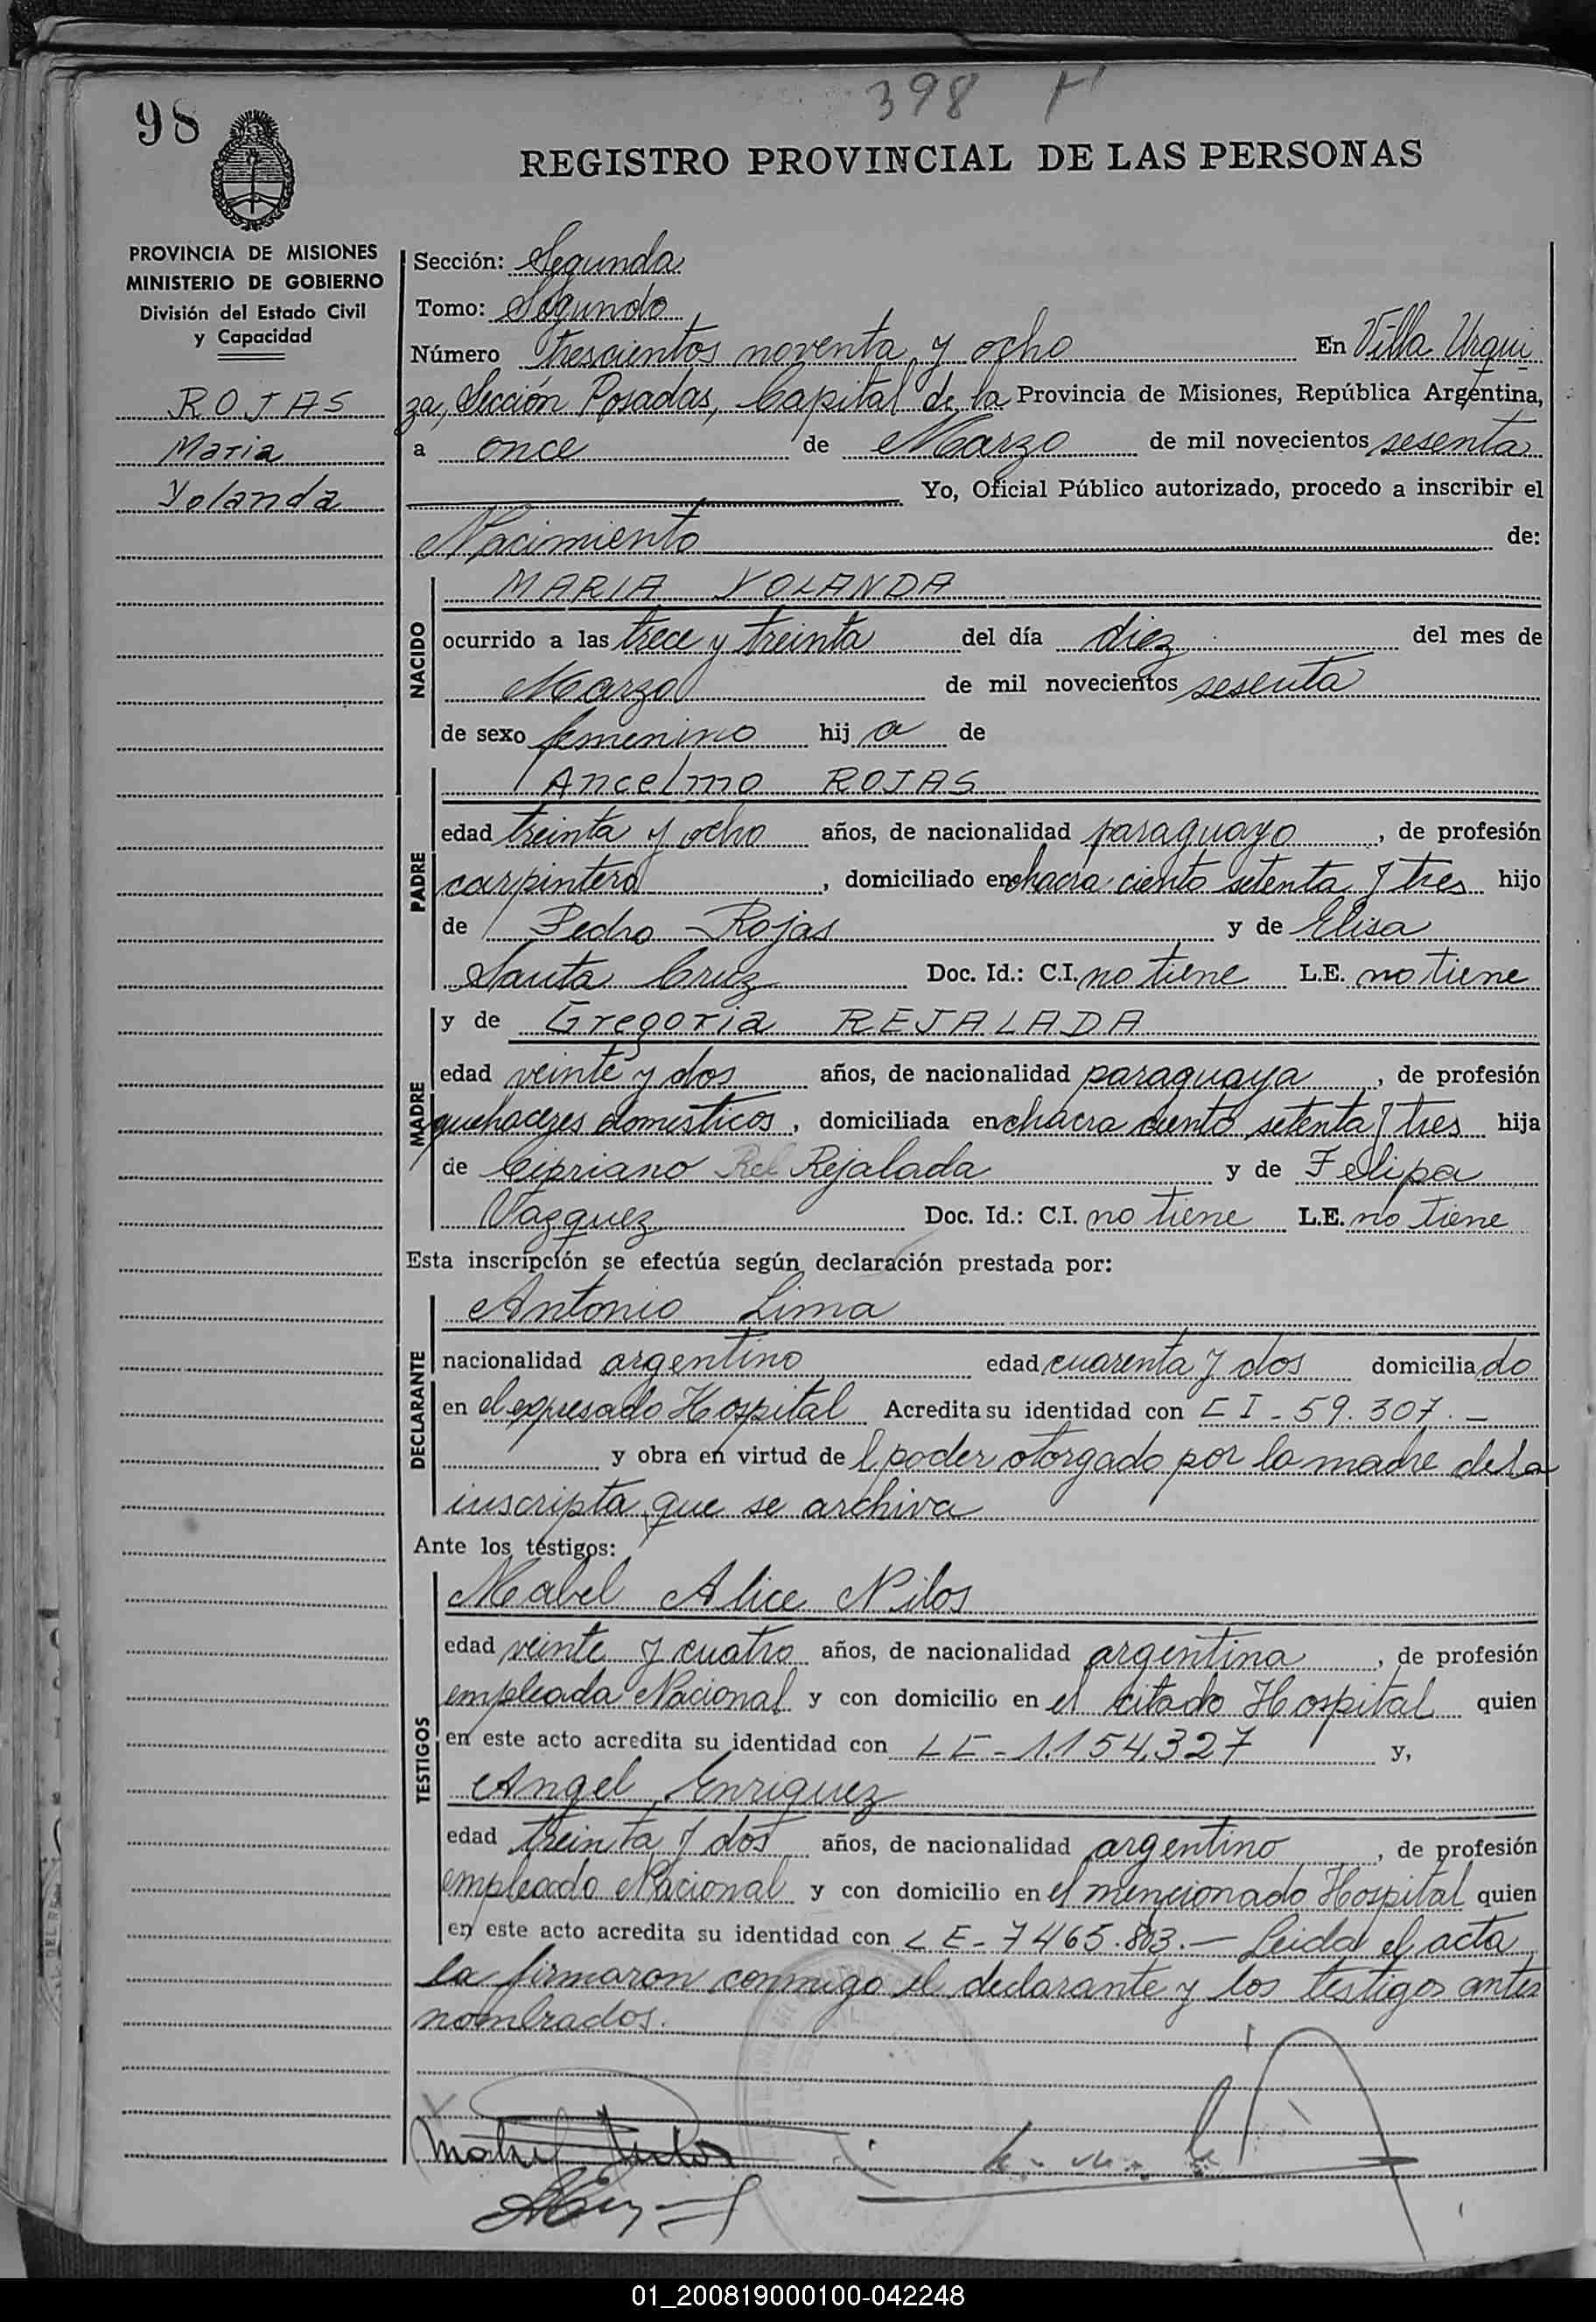 398
98
REGISTRO PROVINCIAL DE LAS PERSONAS
PROVINCIA DE MISIONES
MINISTERIO DE GOBIERNO
División del Estado Civil
y Capacidad
ROJAS
Maria
Yolanda
Sección: Segunda
Tomo: Segundo
Número trescientos noventa y ocho En Villa Urqui
za, Sección Posadas, Capital de la Provincia de Misiones, República Argentina,
a once de Marzo de mil novecientos sesenta
Yo, Oficial Público autorizado, procedo a inscribir el
Nacimiento de:
NACIDO
MARIA YOLANDA
ocurrido a las trece y treinta del día diez del mes de
Marzo de mil novecientos sesenta
de sexo femenino hij a de
PADRE
Ancelmo ROJAS
edad treinta y ocho años, de nacionalidad paraguayo, de profesión
carpintero, domiciliado en chacra ciento setenta y tres hijo
de Pedro Rojas y de Elisa
Santa Cruz Doc. Id.: C.I. no tiene L.E. no tiene
MADRE
y de Gregoria REJALADA
edad veinte y dos años, de nacionalidad paraguaya, de profesión
quehaceres domésticos, domiciliada en chacra ciento setenta y tres hija
de Cipriano Rejalada y de Felipa
Vazquez Doc. Id.: C.I. no tiene L.E. no tiene
Esta inscripción se efectúa según declaración prestada por:
DECLARANTE
Antonio Lima
nacionalidad argentino edad cuarenta y dos domiciliado
en el expresado Hospital Acredita su identidad con C I - 59.307.-
y obra en virtud de l poder otorgado por la madre de la
inscripta que se archiva
Ante los testigos:
TESTIGOS
Mabel Alice Nilos
edad veinte y cuatro años, de nacionalidad argentina, de profesión
empleada Nacional y con domicilio en el citado Hospital quien
en este acto acredita su identidad con LE - 1.154.327 y,
Angel Enriquez
edad treinta y dos años, de nacionalidad argentino, de profesión
empleado Nacional y con domicilio en el mencionado Hospital quien
en este acto acredita su identidad con LE - 7465.803.- Leida el acta
la firmaron conmigo el declarante y los testigos antes
nombrados.
01_200819000100-042248